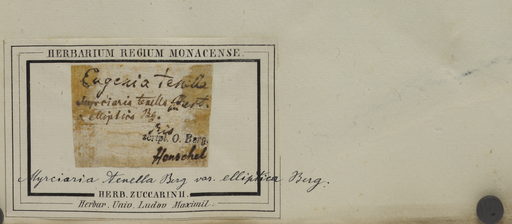 HERBARIUM REGIUM MONACENSE.
Eugenia tenella
Myrciaria tenella Bert.
α elliptica Bg.
script. O. Berg.
Henschel
Myrciaria tenella Berg var. elliptica Berg.
HERB. ZUCCARINII.
Herbar. Univ. Ludov. Maximil.